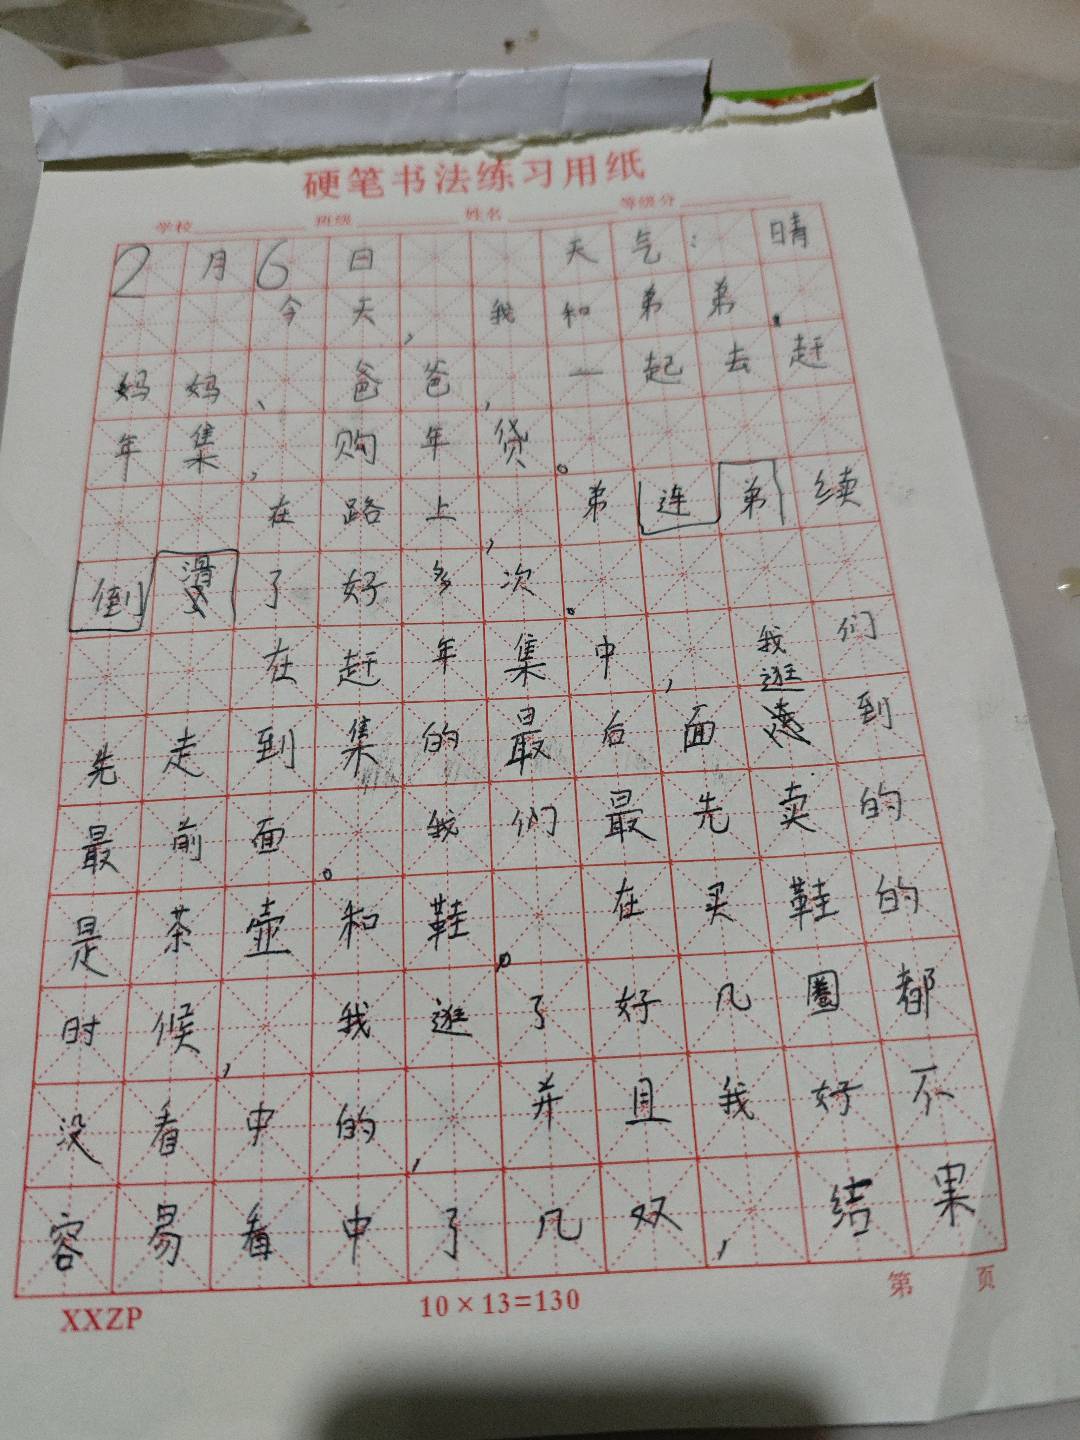 硬笔书法练习用纸
学校 班级 姓名 等级分
2月6日 天气: 晴
今天,我和弟弟、
妈妈、爸爸,一起去赶
年集,购年货。
在路上,弟连弟续
倒滑了好多次。
在赶年集中,我们
先走到集的最后面逛到
最前面。我们最先卖的
是茶壶和鞋。在买鞋的
时候,我逛了好几圈都
没看中的,并且我好不
容易看中了几双,结果
XXZP 10×13=130 第 页